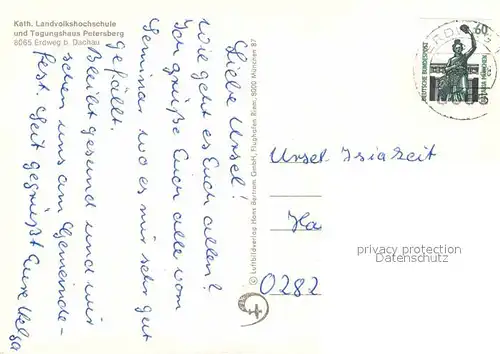 Kath. Landvolkshochschule
und Tagungshaus Petersberg
8065 Erdweg b. Dachau
Liebe Ursel!
Wie geht es Euch allen?
Ich grüße Euch alle vom
Seminar, wo es mir sehr gut
gefällt.
Bleibt gesund und wir
sehen uns am Gemeinde-
fest. Seit gegrüßt Eure Helga
© Luftbildverlag Hans Bertram GmbH, Flughafen Riem, 8000 München 87
60
DEUTSCHE BUNDESPOST
BAVARIA MÜNCHEN
Ursel
Ha
0282
privacy protection
Datenschutz